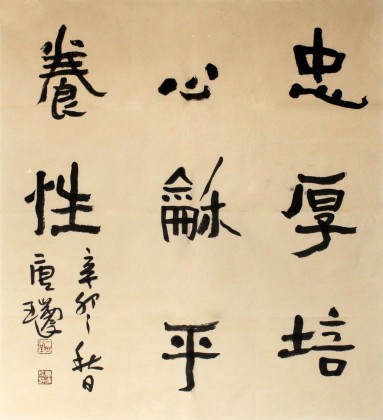 忠厚培
心龢平
養性
辛卯秋日